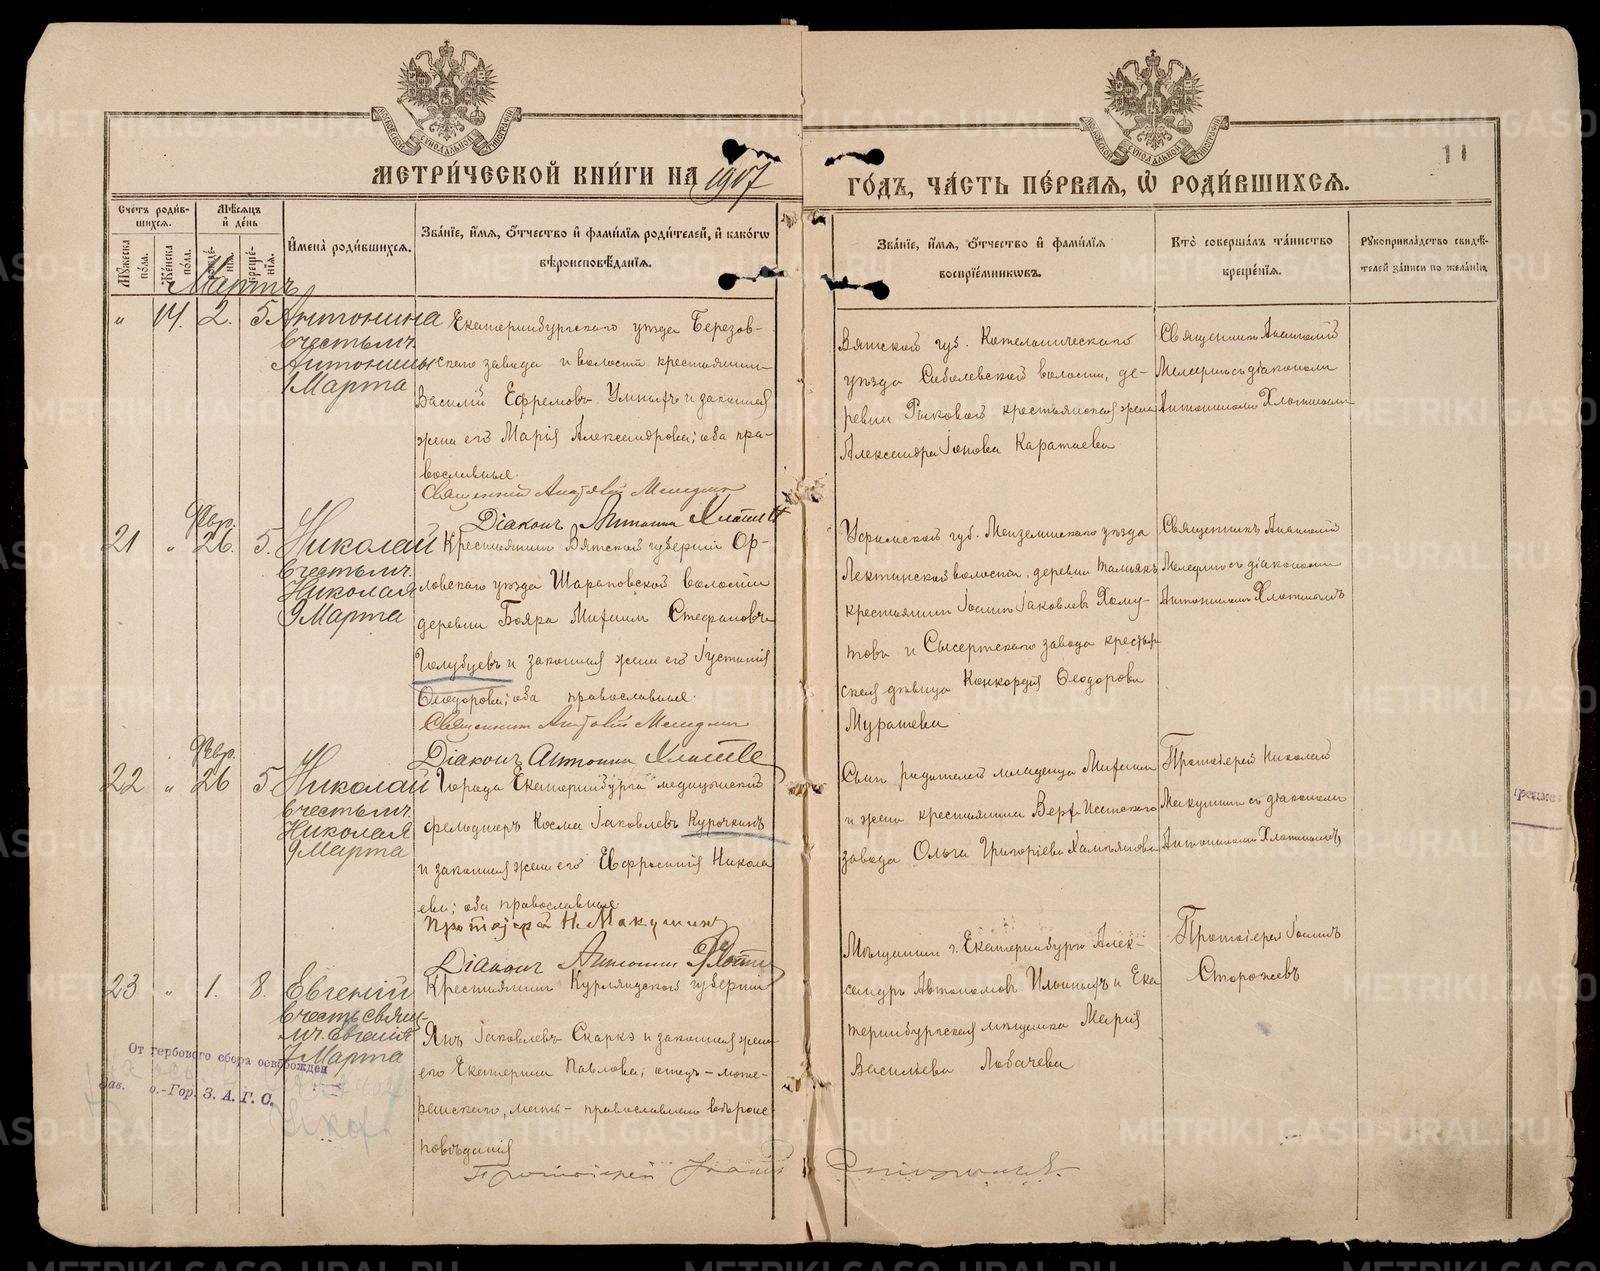 МЕТРИ́ЧЕСКОЙ КНИ́ГИ НА 1917 ГО́ДЪ, ЧА́СТЬ ПЕ́РВАЯ, Ѽ РОДИ́ВШИХСЯ.
11
Сче́тъ роди́вшихся.
Мѣ́сяцъ и҆ де́нь
Му́жеска по́ла.
Же́нска по́ла.
рожде́нїя.
креще́нїя.
И҆мена̀ роди́вшихся.
Зва́нїе, и҆́мя, ѻ҆́тчество и҆ фами́лїя роди́телей, и҆ како́гѡ
вѣроисповѣ́данїя.
Зва́нїе, и҆́мя, ѻ҆́тчество и҆ фами́лїя
воспрїе́мникѡвъ.
Кто̀ соверша́лъ та́инство
креще́нїя.
Рꙋкоприкла́дство свидѣ́-
телей за́писи по жела́нїю.
Мартъ
" 14. 2. 5
Антонина
въ честь мч.
Антонины
1 Марта
Екатеринбургскаго уѣзда Березов-
скаго завода и волости крестьянинъ
Василій Ефремовъ Умныхъ и законная
жена его Марія Александрова; оба пра-
вославные.
Священникъ Анатолій
Діаконъ Антонинъ
Вятской губ. Котельническаго
уѣзда Соболевской волости, де-
ревни Рыковой крестьянская жена
Александра Іонова Каратаева
Священникъ Анатолій
съ діакономъ
Антониномъ
21 " Февр. 26. 5.
Николай
въ честь мч.
Николая
9 Марта
Крестьянинъ Вятской губерніи Ор-
ловскаго уѣзда Шараповской волости
деревни Бояра Стефановъ
Голубцевъ и законная жена его Іустинія
Ѳеодорова; оба православные.
Священникъ Анатолій
Діаконъ Антонинъ
Уфимской губ. Мензелинскаго уѣзда
волости, деревни
крестьянинъ Іоаннъ Іаковлевъ Хому-
товъ и Сысертскаго завода крестьян-
ская дѣвица Конкордія Ѳеодорова
Муратева
Священникъ Анатолій
съ діакономъ
Антониномъ
22 " Февр. 26 5
Николай
въ честь мч.
Николая
9 Марта
Города Екатеринбурга медицинскій
фельдшеръ Косма Іаковлевъ Курочкинъ
и законная жена его Евфросинія Никола-
ева; оба православные.
Протоіерей Н. Макушинъ
Діаконъ Антонинъ
Сынъ родителей младенца
и жена крестьянина Верх-Исетскаго
завода Ольга Григоріева
Протоіерей Николай
Макушинъ съ діакономъ
Антониномъ
23 " 1. 8.
Евгеній
въ честь свящ-
мч. Евгенія
7 Марта
Крестьянинъ Курляндской губерніи
Янъ Іаковлевъ Скаркэ и законная жена
его Екатерина Павлова; отецъ — люте-
ранскаго, мать — православнаго вѣроис-
повѣданія
Протоіерей Іоаннъ Сторожевъ
Мѣщанинъ г. Екатеринбурга Алек-
сандръ Автономовъ Ильиныхъ и Ека-
теринбургская мѣщанка Марія
Васильева Лобачева
Протоіерей Іоаннъ
Сторожевъ
От гербового сбора освобожден
Зав. о.-Гор. З. А. Г. С.
METRIKI.GASO-URAL.RU